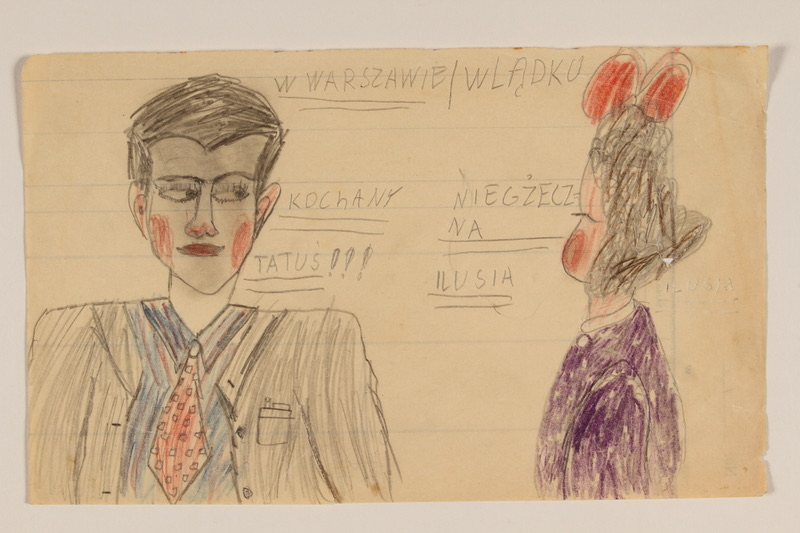 W WARSZAWIE/WLĄDKU
KOChANY
TATUŚ!!!
NIEGŻECZ=
NA
ILUSIA
ILUSIA